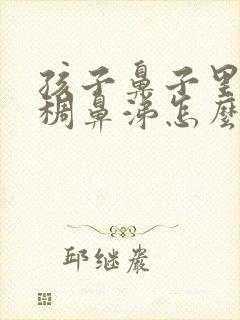 孩子鼻子里
稠鼻涕怎麼
邱继岩